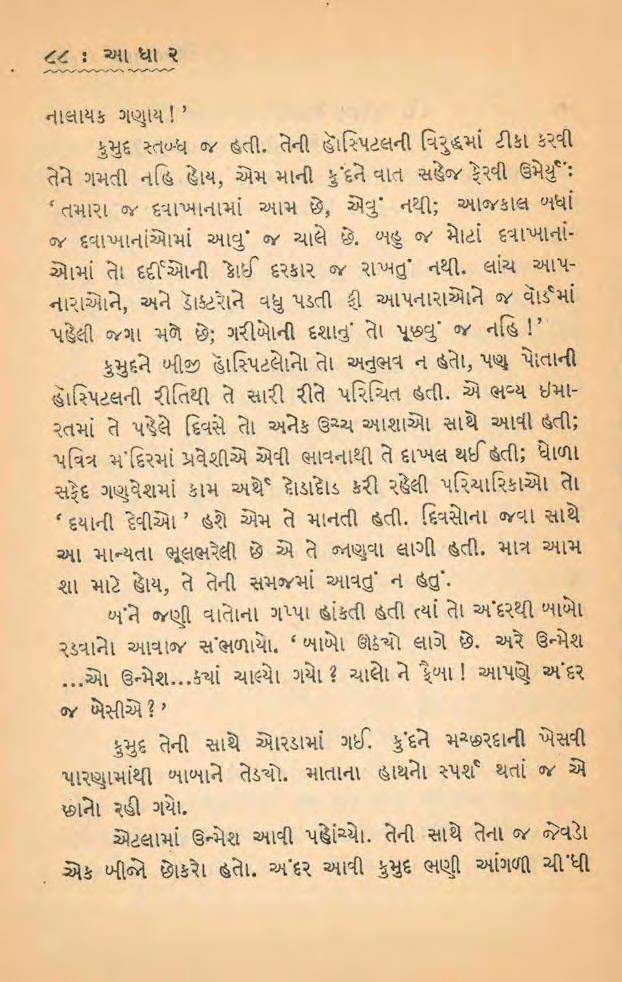 ૮૮ : આ ધા ર
નાલાયક ગણાય!’
કુમુદ સ્તબ્ધ જ હતી. તેની હૉસ્પિટલની વિરુદ્ધમાં ટીકા કરવી
તેને ગમતી નહિ હોય, એમ માની કુંદને વાત સહેજ ફેરવી ઉમેર્યું:
‘તમારા જ દવાખાનામાં આમ છે, એવું નથી; આજકાલ બધાં
જ દવાખાનાંઓમાં આવું જ ચાલે છે. બહુ જ મોટાં દવાખાનાં-
ઓમાં તો દર્દીઓની કોઈ દરકાર જ રાખતું નથી. લાંચ આપ-
નારાઓને, અને ડૉક્ટરોને વધુ પડતી ફી આપનારાઓને જ વૉર્ડમાં
પહેલી જગા મળે છે; ગરીબોની દશાનું તો પૂછવું જ નહિ!’
કુમુદને બીજી હૉસ્પિટલોનો તો અનુભવ ન હતો, પણ પોતાની
હૉસ્પિટલની રીતિથી તે સારી રીતે પરિચિત હતી. એ ભવ્ય ઇમા-
રતમાં તે પહેલે દિવસે તો અનેક ઉચ્ચ આશાઓ સાથે આવી હતી;
પવિત્ર મંદિરમાં પ્રવેશીએ એવી ભાવનાથી તે દાખલ થઈ હતી; ધોળા
સફેદ ગણવેશમાં કામ અર્થે દોડાદોડ કરી રહેલી પરિચારિકાઓ તો
‘દયાની દેવીઓ’ હશે એમ તે માનતી હતી. દિવસોના જવા સાથે
આ માન્યતા ભૂલભરેલી છે એ તે જાણવા લાગી હતી. માત્ર આમ
શા માટે હોય, તે તેની સમજમાં આવતું ન હતું.
બંને જણી વાતોના ગપ્પા હાંકતી હતી ત્યાં તો અંદરથી બાબો
રડવાનો આવાજ સંભળાયો. ‘બાબો ઊઠ્યો લાગે છે. અરે ઉન્મેશ
...ઓ ઉન્મેશ...ક્યાં ચાલ્યો ગયો? ચાલો ને ફૈબા! આપણે અંદર
જ બેસીએ?’
કુમુદ તેની સાથે ઓરડામાં ગઈ. કુંદને મચ્છરદાની ખેસવી
પારણામાંથી બાબાને તેડ્યો. માતાના હાથનો સ્પર્શ થતાં જ એ
છાનો રહી ગયો.
એટલામાં ઉન્મેશ આવી પહોંચ્યો. તેની સાથે તેના જ જેવડો
એક બીજો છોકરો હતો. અંદર આવી કુમુદ ભણી આંગળી ચીંધી